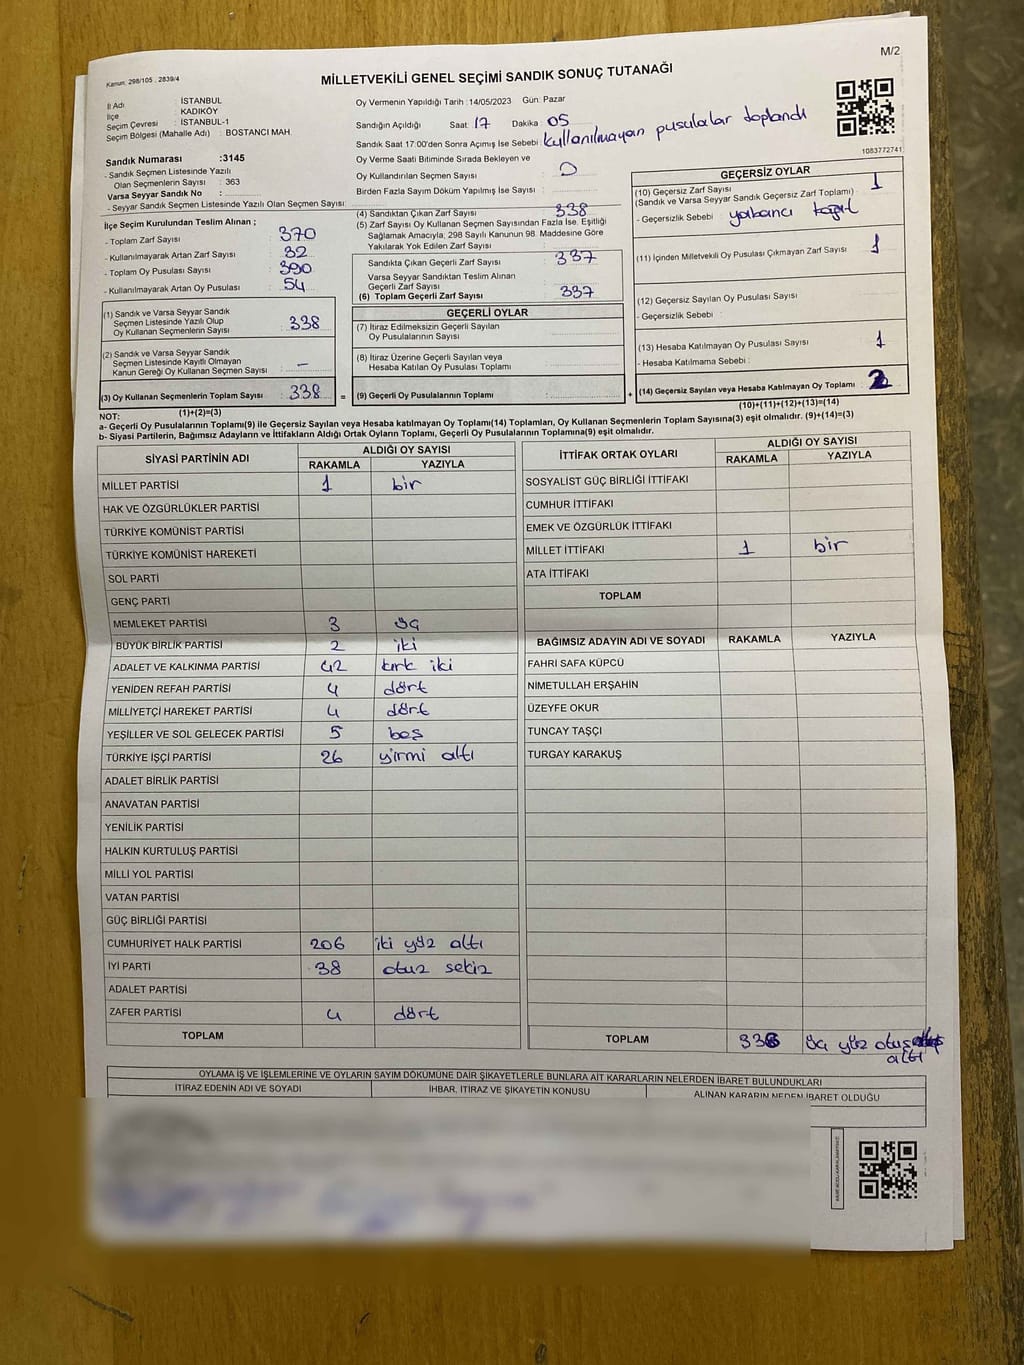 M/2
Kanun: 298/105 , 2839/4
MİLLETVEKİLİ GENEL SEÇİMİ SANDIK SONUÇ TUTANAĞI
İl Adı : İSTANBUL
İlçe : KADIKÖY
Seçim Çevresi : İSTANBUL-1
Seçim Bölgesi (Mahalle Adı) : BOSTANCI MAH.
Sandık Numarası :3145
- Sandık Seçmen Listesinde Yazılı
Olan Seçmenlerin Sayısı : 363
Varsa Seyyar Sandık No :
- Seyyar Sandık Seçmen Listesinde Yazılı Olan Seçmen Sayısı:
Oy Vermenin Yapıldığı Tarih :14/05/2023 Gün: Pazar
Sandığın Açıldığı Saat: 17 Dakika: 05
Sandık Saat 17:00'den Sonra Açımış İse Sebebi: kullanılmayan pusulalar toplandı
Oy Verme Saati Bitiminde Sırada Bekleyen ve
Oy Kullandırılan Seçmen Sayısı : 0
Birden Fazla Sayım Döküm Yapılmış İse Sayısı :
1083772741
İlçe Seçim Kurulundan Teslim Alınan ;
- Toplam Zarf Sayısı : 370
- Kullanılmayarak Artan Zarf Sayısı : 32
- Toplam Oy Pusulası Sayısı : 390
- Kullanılmayarak Artan Oy Pusulası : 54
(1) Sandık ve Varsa Seyyar Sandık
Seçmen Listesinde Yazılı Olup
Oy Kullanan Seçmenlerin Sayısı : 338
(2) Sandık ve Varsa Seyyar Sandık
Seçmen Listesinde Kayıtlı Olmayan
Kanun Gereği Oy Kullanan Seçmen Sayısı : -
(3) Oy Kullanan Seçmenlerin Toplam Sayısı : 338
(1)+(2)=(3)
(4) Sandıktan Çıkan Zarf Sayısı : 338
(5) Zarf Sayısı Oy Kullanan Seçmen Sayısından Fazla İse, Eşitliği
Sağlamak Amacıyla, 298 Sayılı Kanunun 98. Maddesine Göre
Yakılarak Yok Edilen Zarf Sayısı :
Sandıkta Çıkan Geçerli Zarf Sayısı : 337
Varsa Seyyar Sandıktan Teslim Alınan
Geçerli Zarf Sayısı :
(6) Toplam Geçerli Zarf Sayısı : 337
GEÇERLİ OYLAR
(7) İtiraz Edilmeksizin Geçerli Sayılan
Oy Pusulasının Sayısı :
(8) İtiraz Üzerine Geçerli Sayılan veya
Hesaba Katılan Oy Pusulası Toplamı :
= (9) Geçerli Oy Pusulalarının Toplamı :
GEÇERSİZ OYLAR
(10) Geçersiz Zarf Sayısı : 1
(Sandık ve Varsa Seyyar Geçersiz Zarf Toplamı)
- Geçersizlik Sebebi : yabancı
(11) İçinden Milletvekili Oy Pusulası Çıkmayan Zarf Sayısı : 1
(12) Geçersiz Sayılan Oy Pusulası Sayısı :
- Geçersizlik Sebebi :
(13) Hesaba Katılmayan Oy Pusulası Sayısı : 1
- Hesaba Katılmama Sebebi :
+ (14) Geçersiz Sayılan veya Hesaba Katılmayan Oy Toplamı : 2
(10)+(11)+(12)+(13)=(14)
NOT:
a- Geçerli Oy Pusulalarının Toplamı(9) ile Geçersiz Sayılan veya Hesaba katılmayan Oy Toplamı(14) Toplamları, Oy Kullanan Seçmenlerin Toplam Sayısına(3) eşit olmalıdır. (9)+(14)=(3)
b- Siyasi Partilerin, Bağımsız Adayların ve İttifakların Aldığı Ortak Oyların Toplamı, Geçerli Oy Pusulalarının Toplamına(9) eşit olmalıdır.
SİYASİ PARTİNİN ADI ALDIĞI OY SAYISI
RAKAMLA YAZIYLA
MİLLET PARTİSİ 1 bir
HAK VE ÖZGÜRLÜKLER PARTİSİ
TÜRKİYE KOMÜNİST PARTİSİ
TÜRKİYE KOMÜNİST HAREKETİ
SOL PARTİ
GENÇ PARTİ
MEMLEKET PARTİSİ 3 üç
BÜYÜK BİRLİK PARTİSİ 2 iki
ADALET VE KALKINMA PARTİSİ 42 kırk iki
YENİDEN REFAH PARTİSİ 4 dört
MİLLİYETÇİ HAREKET PARTİSİ 4 dört
YEŞİLLER VE SOL GELECEK PARTİSİ 5 beş
TÜRKİYE İŞÇİ PARTİSİ 26 yirmi altı
ADALET BİRLİK PARTİSİ
ANAVATAN PARTİSİ
YENİLİK PARTİSİ
HALKIN KURTULUŞ PARTİSİ
MİLLİ YOL PARTİSİ
VATAN PARTİSİ
GÜÇ BİRLİĞİ PARTİSİ
CUMHURİYET HALK PARTİSİ 206 iki yüz altı
İYİ PARTİ 38 otuz sekiz
ADALET PARTİSİ
ZAFER PARTİSİ 4 dört
TOPLAM
İTTİFAK ORTAK OYLARI ALDIĞI OY SAYISI
RAKAMLA YAZIYLA
SOSYALİST GÜÇ BİRLİĞİ İTTİFAKI
CUMHUR İTTİFAKI
EMEK VE ÖZGÜRLÜK İTTİFAKI
MİLLET İTTİFAKI 1 bir
ATA İTTİFAKI
TOPLAM
BAĞIMSIZ ADAYIN ADI VE SOYADI RAKAMLA YAZIYLA
FAHRİ SAFA KÜPCÜ
NİMETULLAH ERŞAHİN
ÜZEYFE OKUR
TUNCAY TAŞÇI
TURGAY KARAKUŞ
TOPLAM 336 üç yüz otuz
altı
OYLAMA İŞ VE İŞLEMLERİNE VE OYLARIN SAYIM DÖKÜMÜNE DAİR ŞİKAYETLERLE BUNLARA AİT KARARLARIN NELERDEN İBARET BULUNDUKLARI
İTİRAZ EDENİN ADI VE SOYADI İHBAR, İTİRAZ VE ŞİKAYETİN KONUSU ALINAN KARARIN NEDEN İBARET OLDUĞU